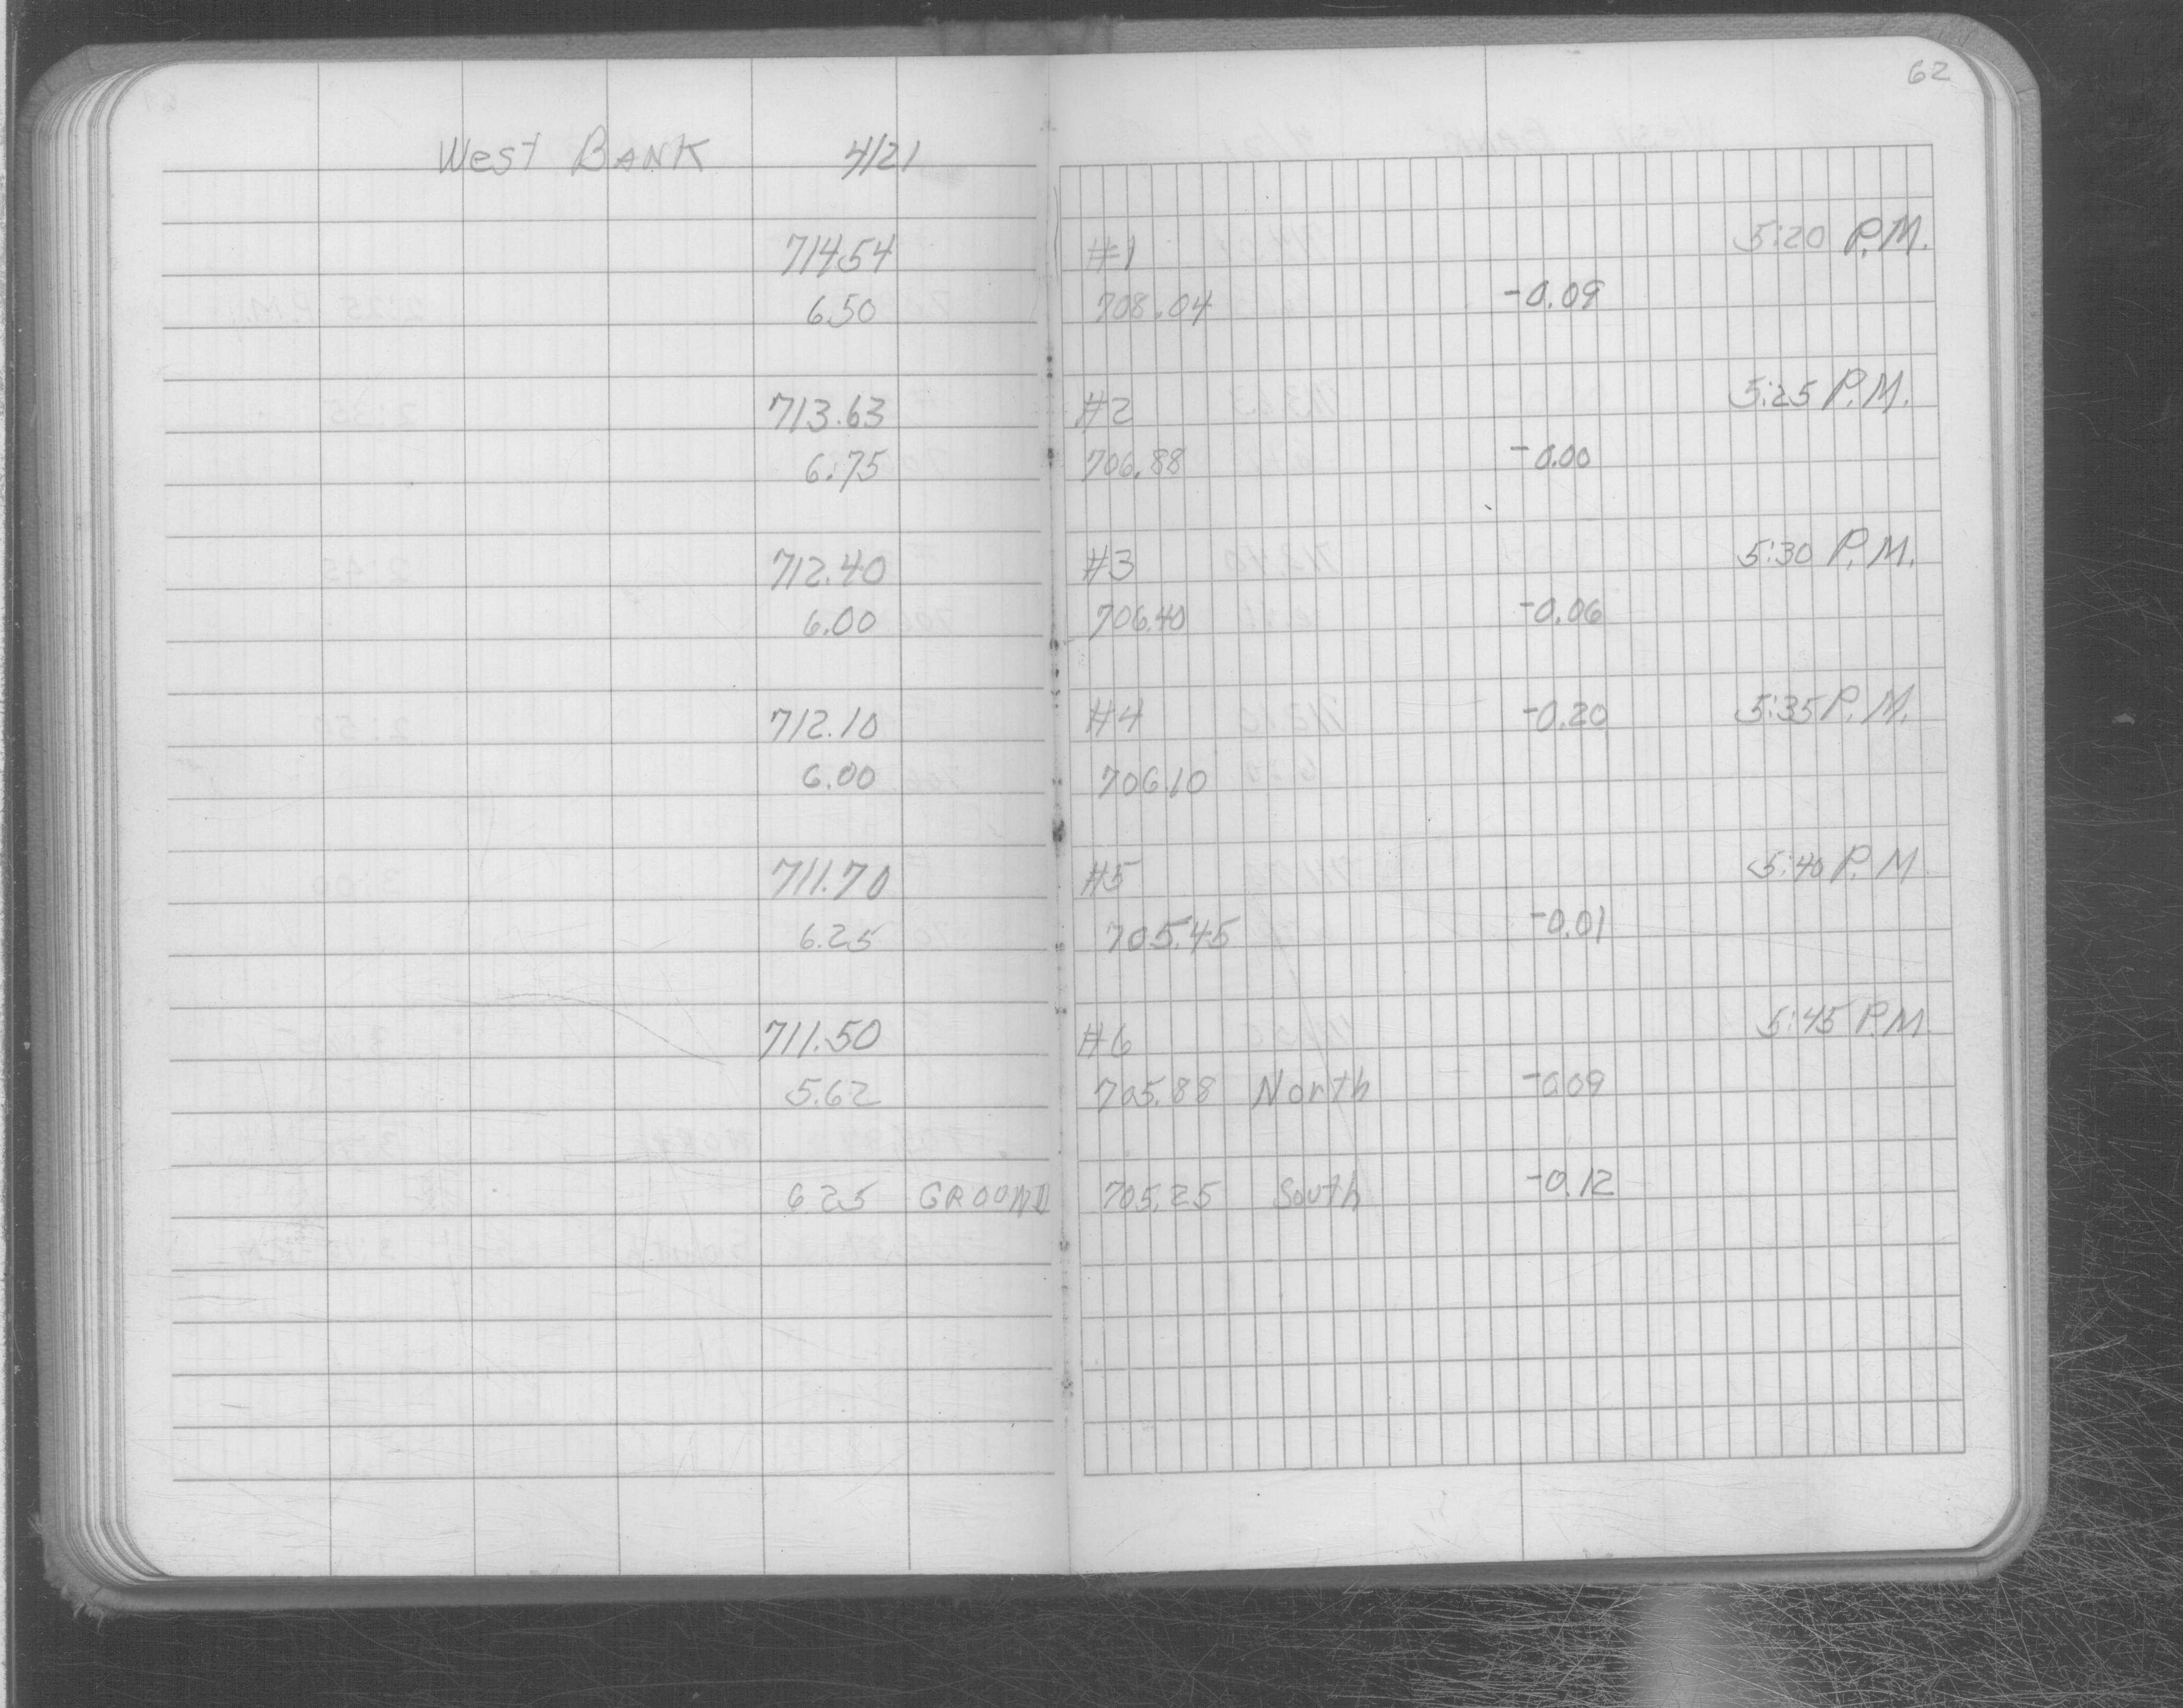 62
West BANK 4/21
714.54 #1 5:20 P.M.
6.50 708.04 -0.09
713.63 #2 5:25 P.M.
6.75 706.88 -0.00
712.40 #3 5:30 P.M.
6.00 706.40 -0.06
712.10 #4 -0.20 5:35 P.M.
6.00 706.10
711.70 #5 5:40 P.M
6.25 705.45 -0.01
711.50 #6 5:45 P.M
5.62 705.88 North -0.09
6.25 GROUND 705.25 South -0.12